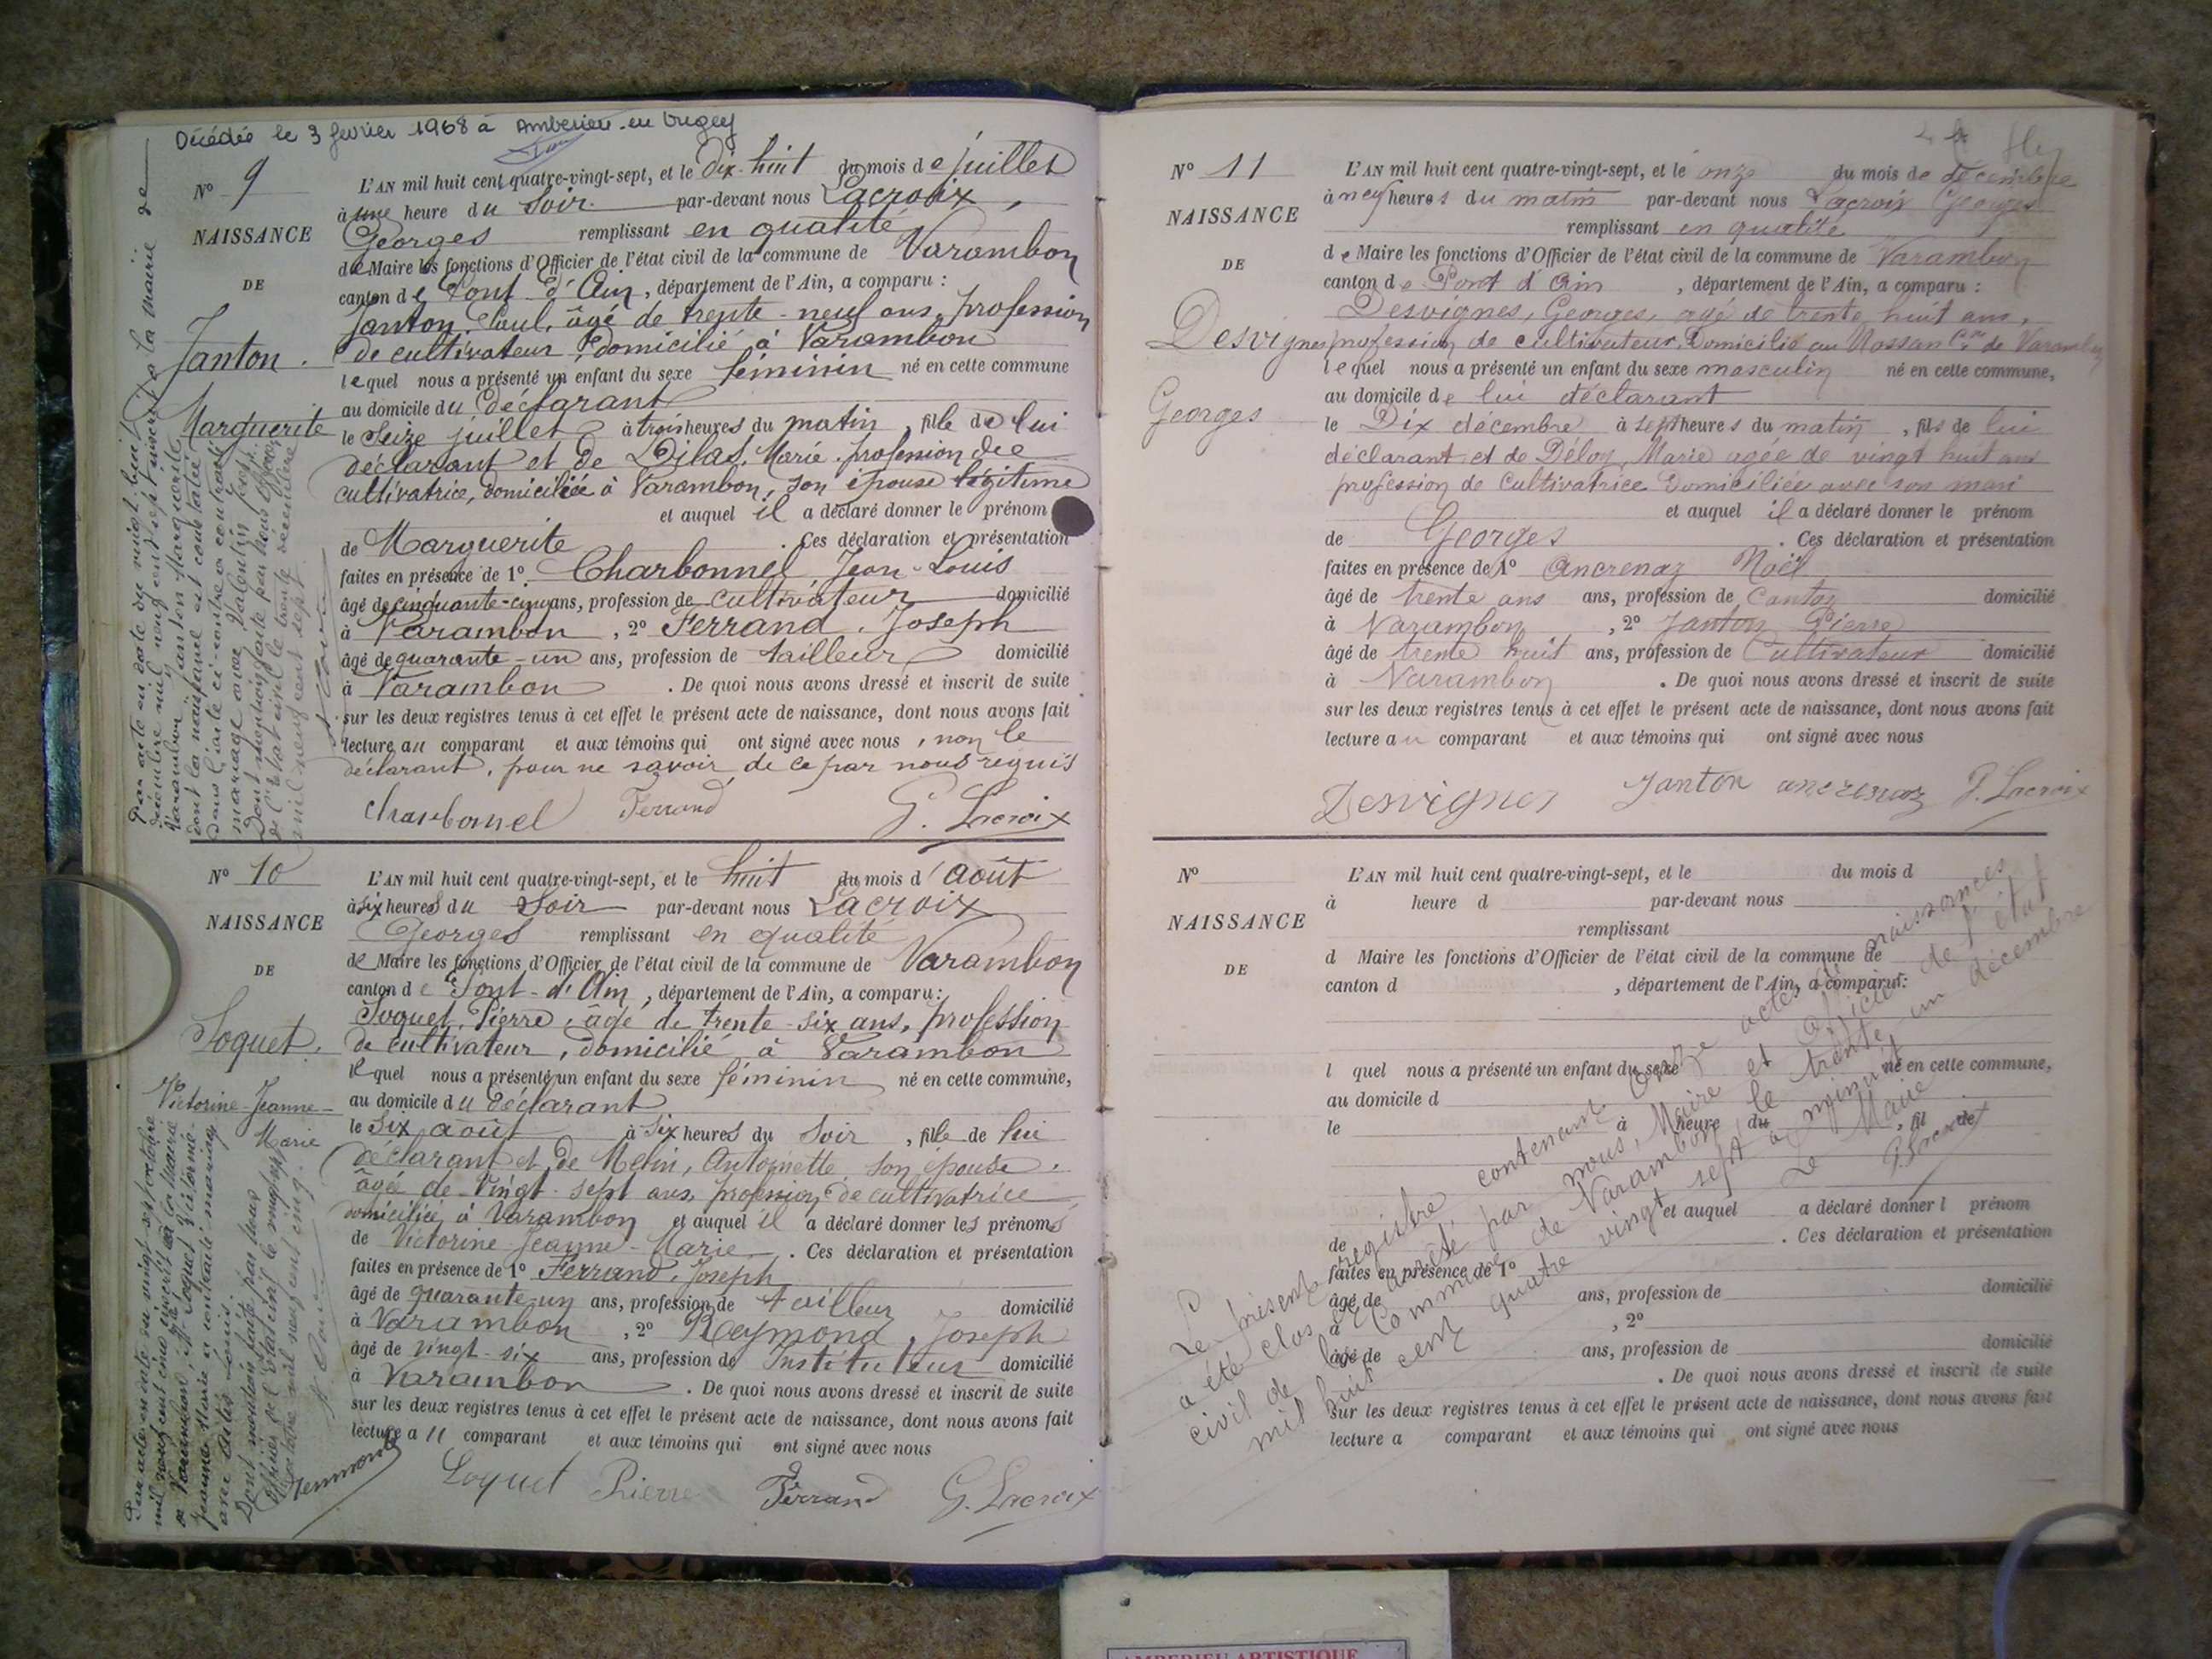 Décédée le 3 fevrier 1968 à Amberieu-en bugey
N° 9
NAISSANCE
DE
Janton.
Marguerite
L'AN mil huit cent quatre-vingt-sept, et le Dix-huit du mois de juillet
à une heure du Soir. par-devant nous Lacroix,
Georges remplissant en qualité
de Maire les fonctions d'Officier de l'état civil de la commune de Varambon
canton de Pont-d'Ain, département de l'Ain, a comparu :
Janton Paul, âgé de trente-neuf ans, profession
de cultivateur, domicilié à Varambon
lequel nous a présenté un enfant du sexe féminin né en cette commune
au domicile du Déclarant
le Seize juillet à trois heures du matin, fille de lui
déclarant et de Dilas, Marie, profession de
cultivatrice, domiciliée à Varambon, son épouse légitime
et auquel il a déclaré donner le prénom
de Marguerite. Ces déclaration et présentation
faites en présence de 1° Charbonnel Jean-Louis
âgé de cinquante-cinq ans, profession de cultivateur domicilié
à Varambon, 2° Ferrand, Joseph
âgé de quarante-un ans, profession de tailleur domicilié
à Varambon. De quoi nous avons dressé et inscrit de suite
sur les deux registres tenus à cet effet le présent acte de naissance, dont nous avons fait
lecture au comparant et aux témoins qui ont signé avec nous, non le
déclarant, pour ne savoir, de ce par nous requis
Charbonnel Ferrand G. Lacroix
Par acte en date du vingt huit
décembre mil neuf cent sept inscrit à la mairie de
Varambon Janton Marguerite
dont la naissance est constatée
dans l'acte ci-contre a contracté
mariage avec Valentin
Dont mention faite par nous officier
de l'état civil le trente décembre
mil neuf cent sept
N° 10
NAISSANCE
DE
Loquet.
Victorine-Jeanne-
Marie
L'AN mil huit cent quatre-vingt-sept, et le huit du mois d'août
à six heures du Soir par-devant nous Lacroix
Georges remplissant en qualité
de Maire les fonctions d'Officier de l'état civil de la commune de Varambon
canton de Pont-d'Ain, département de l'Ain, a comparu :
Loquet, Pierre, âgé de trente-six ans, profession
de cultivateur, domicilié à Varambon
lequel nous a présenté un enfant du sexe féminin né en cette commune,
au domicile du Déclarant
le Six août à Six heures du Soir, fille de lui
déclarant et de Antoinette son épouse,
âgée de vingt-sept ans, profession de cultivatrice
domiciliée à Varambon et auquel il a déclaré donner les prénoms
de Victorine-Jeanne-Marie. Ces déclaration et présentation
faites en présence de 1° Ferrand, Joseph
âgé de quarante-un ans, profession de tailleur domicilié
à Varambon, 2° Reymond, Joseph
âgé de vingt-six ans, profession de Instituteur domicilié
à Varambon. De quoi nous avons dressé et inscrit de suite
sur les deux registres tenus à cet effet le présent acte de naissance, dont nous avons fait
lecture au comparant et aux témoins qui ont signé avec nous
Reymond Loquet Pierre Ferrand G. Lacroix
Par acte en date du vingt sept octobre
mil neuf cent cinq inscrit à la mairie
de Varambon, Loquet Victorine-
Jeanne-Marie a contracté mariage
avec Louis.
Dont mention faite par nous
officier de l'état civil le vingt sept
octobre mil neuf cent cinq.
N° 11
NAISSANCE
DE
Desvignes
Georges
L'AN mil huit cent quatre-vingt-sept, et le onze du mois de décembre
à neuf heures du matin par-devant nous Lacroix Georges
remplissant en qualité
de Maire les fonctions d'Officier de l'état civil de la commune de Varambon
canton de Pont d'Ain, département de l'Ain, a comparu :
Desvignes, Georges, agé de trente huit ans,
profession de cultivateur, Domicilié au Mossan Cne de Varambon
lequel nous a présenté un enfant du sexe masculin né en cette commune,
au domicile de lui déclarant
le Dix décembre à sept heures du matin, fils de lui
déclarant et de Déloy, Marie agée de vingt huit ans
profession de Cultivatrice Domiciliée avec son mari
et auquel il a déclaré donner le prénom
de Georges. Ces déclaration et présentation
faites en présence de 1° Ancrenaz Noël
âgé de trente ans ans, profession de domicilié
à Varambon, 2° Janton Pierre
âgé de trente huit ans, profession de Cultivateur domicilié
à Varambon. De quoi nous avons dressé et inscrit de suite
sur les deux registres tenus à cet effet le présent acte de naissance, dont nous avons fait
lecture au comparant et aux témoins qui ont signé avec nous
Desvignes Janton ancrenaz G. Lacroix
N°
NAISSANCE
DE
L'AN mil huit cent quatre-vingt-sept, et le du mois d
à heure d par-devant nous
remplissant
d Maire les fonctions d'Officier de l'état civil de la commune de
canton d , département de l'Ain, a comparu :
l quel nous a présenté un enfant du sexe né en cette commune,
au domicile d
le à heure du , fil de
et auquel a déclaré donner l prénom
de . Ces déclaration et présentation
faites en présence de 1°
âgé de ans, profession de domicilié
à , 2°
âgé de ans, profession de domicilié
à . De quoi nous avons dressé et inscrit de suite
sur les deux registres tenus à cet effet le présent acte de naissance, dont nous avons fait
lecture a comparant et aux témoins qui ont signé avec nous
Le présent registre contenant onze actes de naissances
a été clos et arrêté par nous, Maire et officier de l'état
civil de la Commune de Varambon, le trente un décembre
mil huit cent quatre vingt sept à minuit
Le Maire
G. Lacroix
AMBERIEU ARTISTIQUE